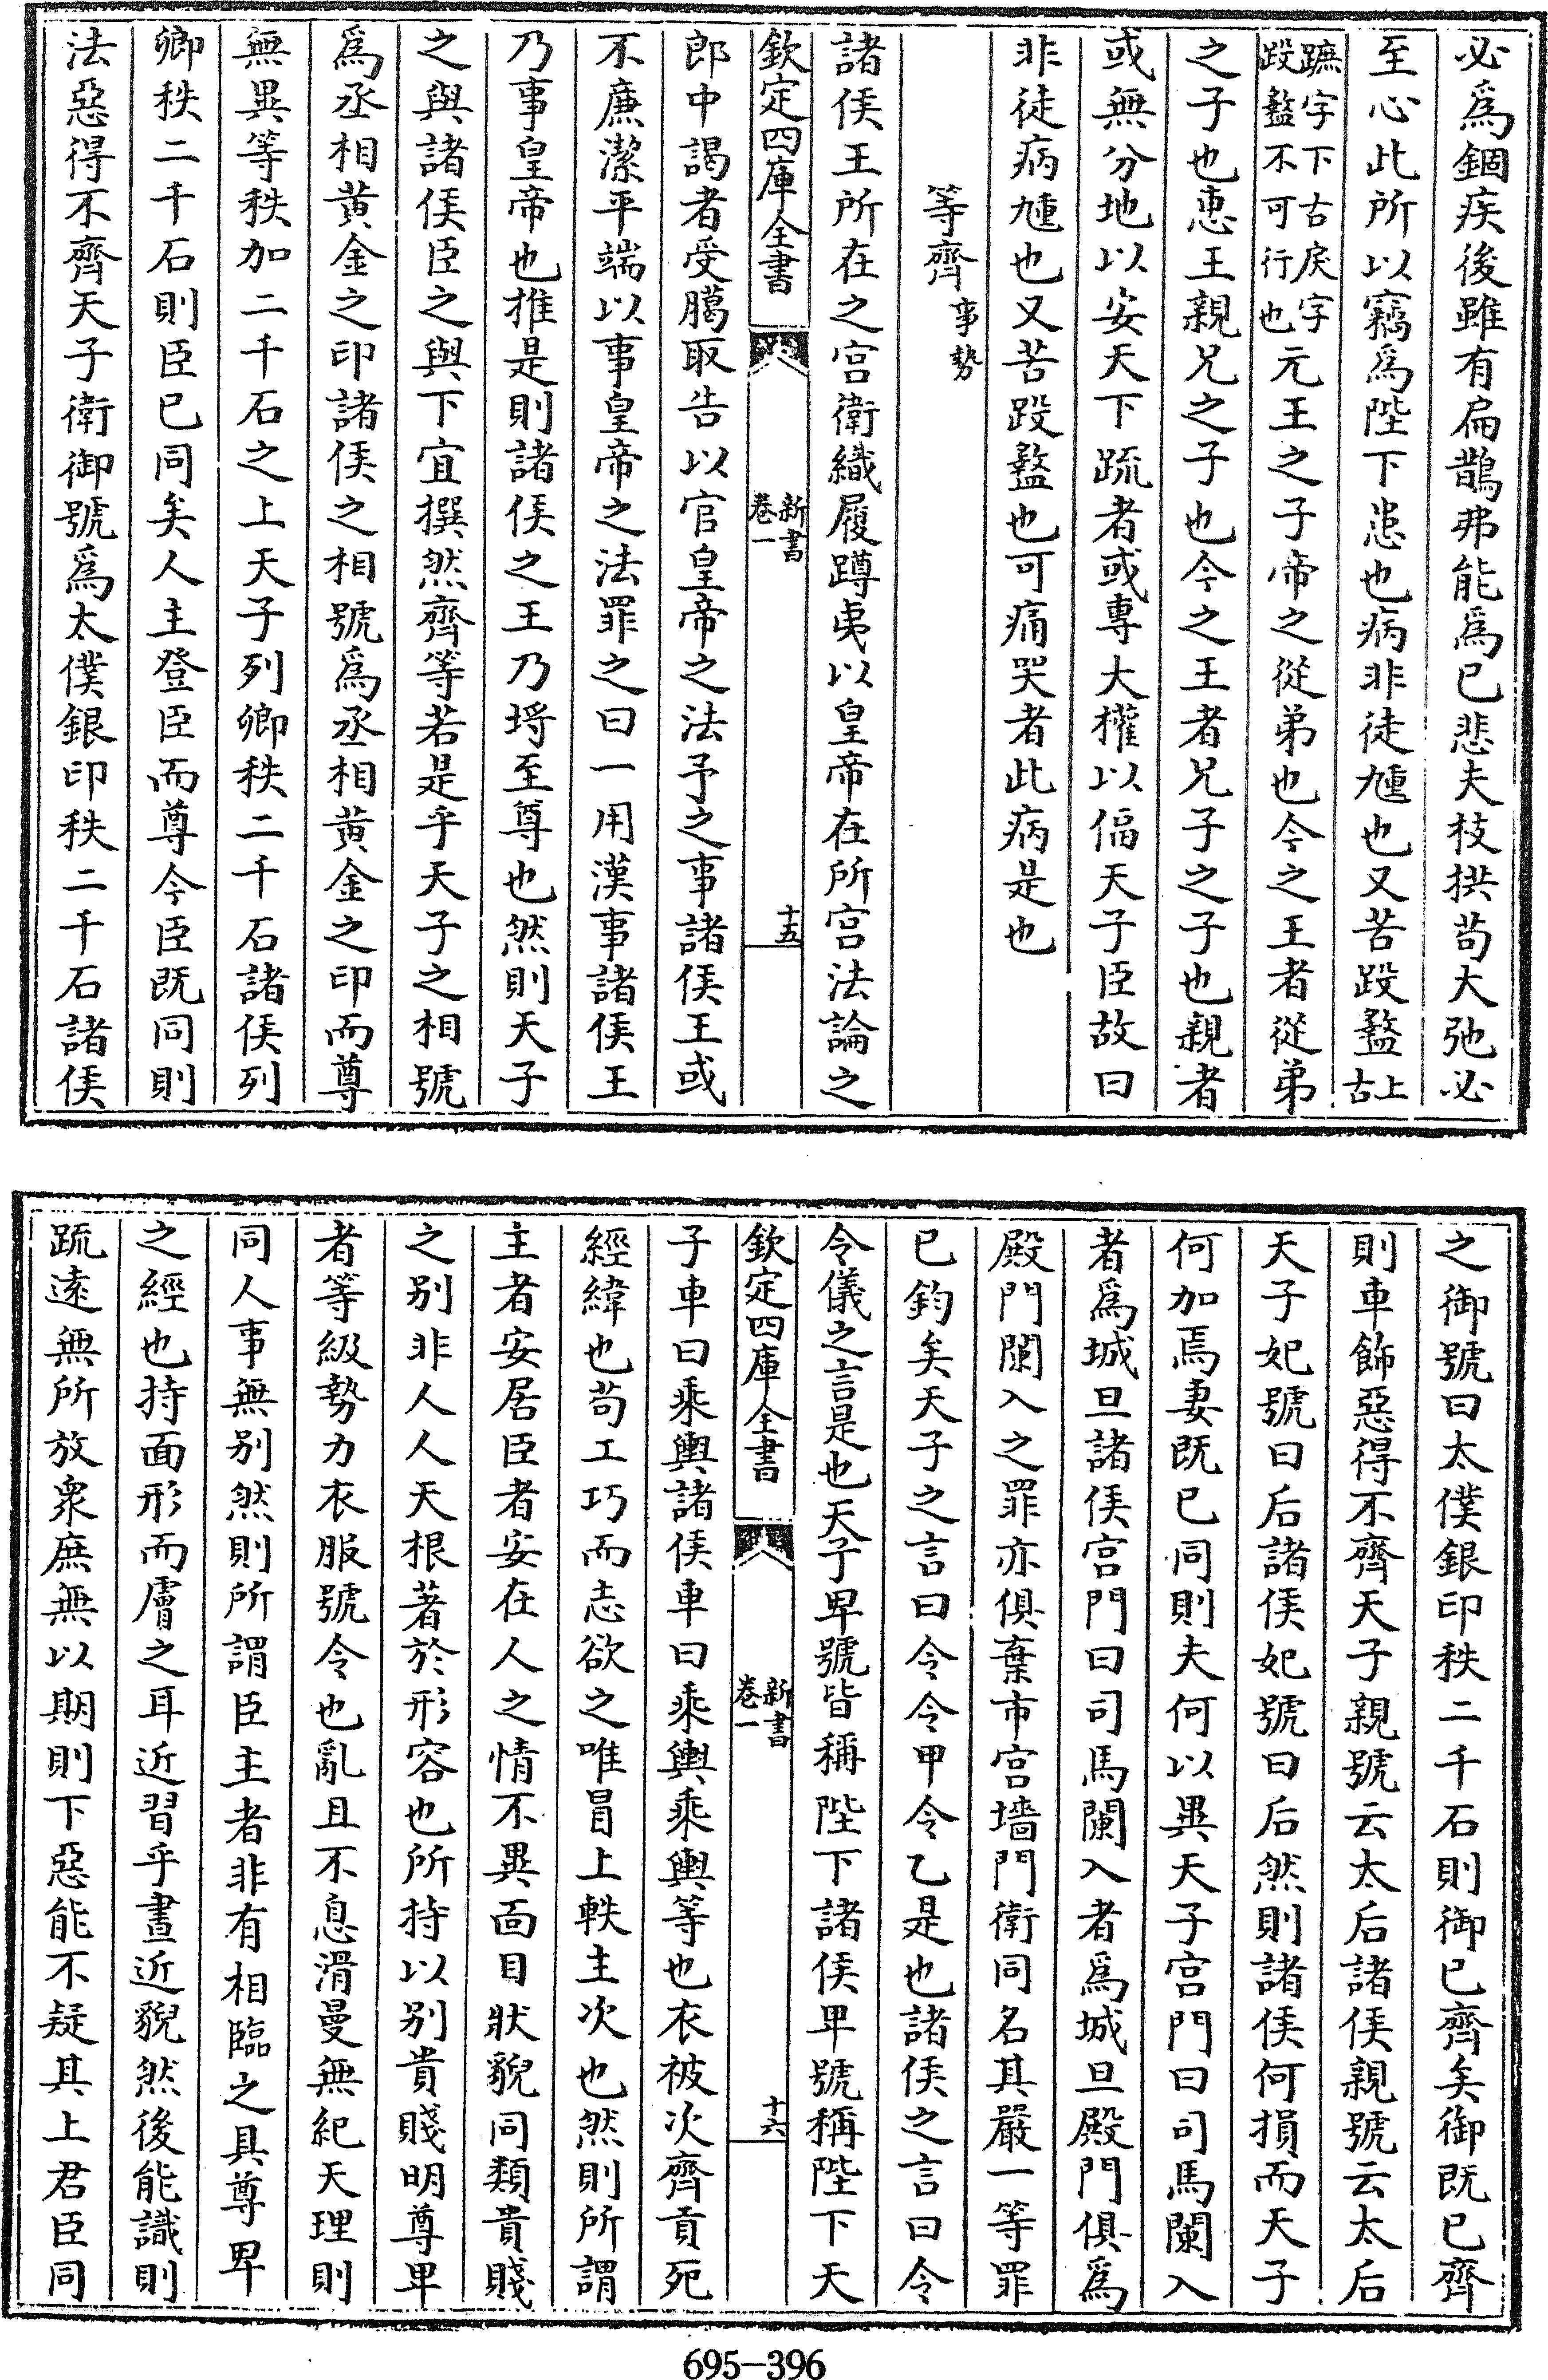 必爲錮疾後雖有扁鵲弗能爲已悲夫枝拱苟大弛必
至心此所以竊爲陛下患也病非徒尰也又苦䟕盭上古
蹠字下古戾字
䟕盭不可行也元王之子帝之從弟也今之王者從弟
之子也惠王親兄之子也今之王者兄子之子也親者
或無分地以安天下疏者或專大權以偪天子臣故曰
非徒病尰也又苦䟕盭也可痛哭者此病是也
等齊事勢
諸侯王所在之宮衛織履蹲夷以皇帝在所宮法論之
欽定四庫全書
新書
卷一
十五
郎中謁者受謁取告以官皇帝之法予之事諸侯王或
不廉潔平端以事皇帝之法罪之曰一用漢事諸侯王
乃事皇帝也推是則諸侯之王乃埓至尊也然則天子
之與諸侯臣之與下宜撰然齊等若是乎天子之相號
爲丞相黄金之印諸侯之相號爲丞相黄金之印而尊
無異等秩加二千石之上天子列卿秩二千石諸侯列
卿秩二千石則臣已同矣人主登臣而尊今臣既同則
法惡得不齊天子衛御號爲太僕銀印秩二千石諸侯
之御號曰太僕銀印秩二千石則御已齊矣御既已齊
則車飾惡得不齊天子親號云太后諸侯親號云太后
天子妃號曰后諸侯妃號曰后然則諸侯何損而天子
何加焉妻既已同則夫何以異天子宮門曰司馬闌入
者爲城旦諸侯宮門曰司馬闌入者爲城旦殿門俱爲
殿門闌入之罪亦俱棄市宮墻門衛同名其嚴一等罪
已鈞矣天子之言曰令令甲令乙是也諸侯之言曰令
令儀之言是也天子卑號皆稱陛下諸侯卑號稱陛下天
欽定四庫全書
新書
卷一
十六
子車曰乘輿諸侯車曰乘輿乘輿等也衣被次齊貢死
經緯也苟工巧而志欲之唯冒上軼主次也然則所謂
主者安居臣者安在人之情不異面目狀貌同類貴賤
之别非人人天根著於形容也所持以别貴賤明尊卑
者等級勢力衣服號令也亂且不息滑曼無紀天理則
同人事無别然則所謂臣主者非有相臨之具尊卑
之經也持面形而膚之耳近習乎晝近貌然後能識則
疏遠無所放衆庶無以期則下惡能不疑其上君臣同
695-396